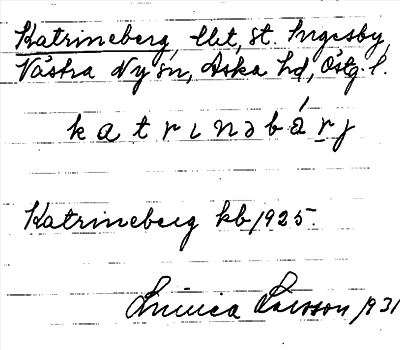 Katrineberg, lht, st. Ingesby,
Västra Ny sn, Aska hd, Östg. l.
katrinəbárj
Katrineberg kb 1925.
Linnea Larsson 1931